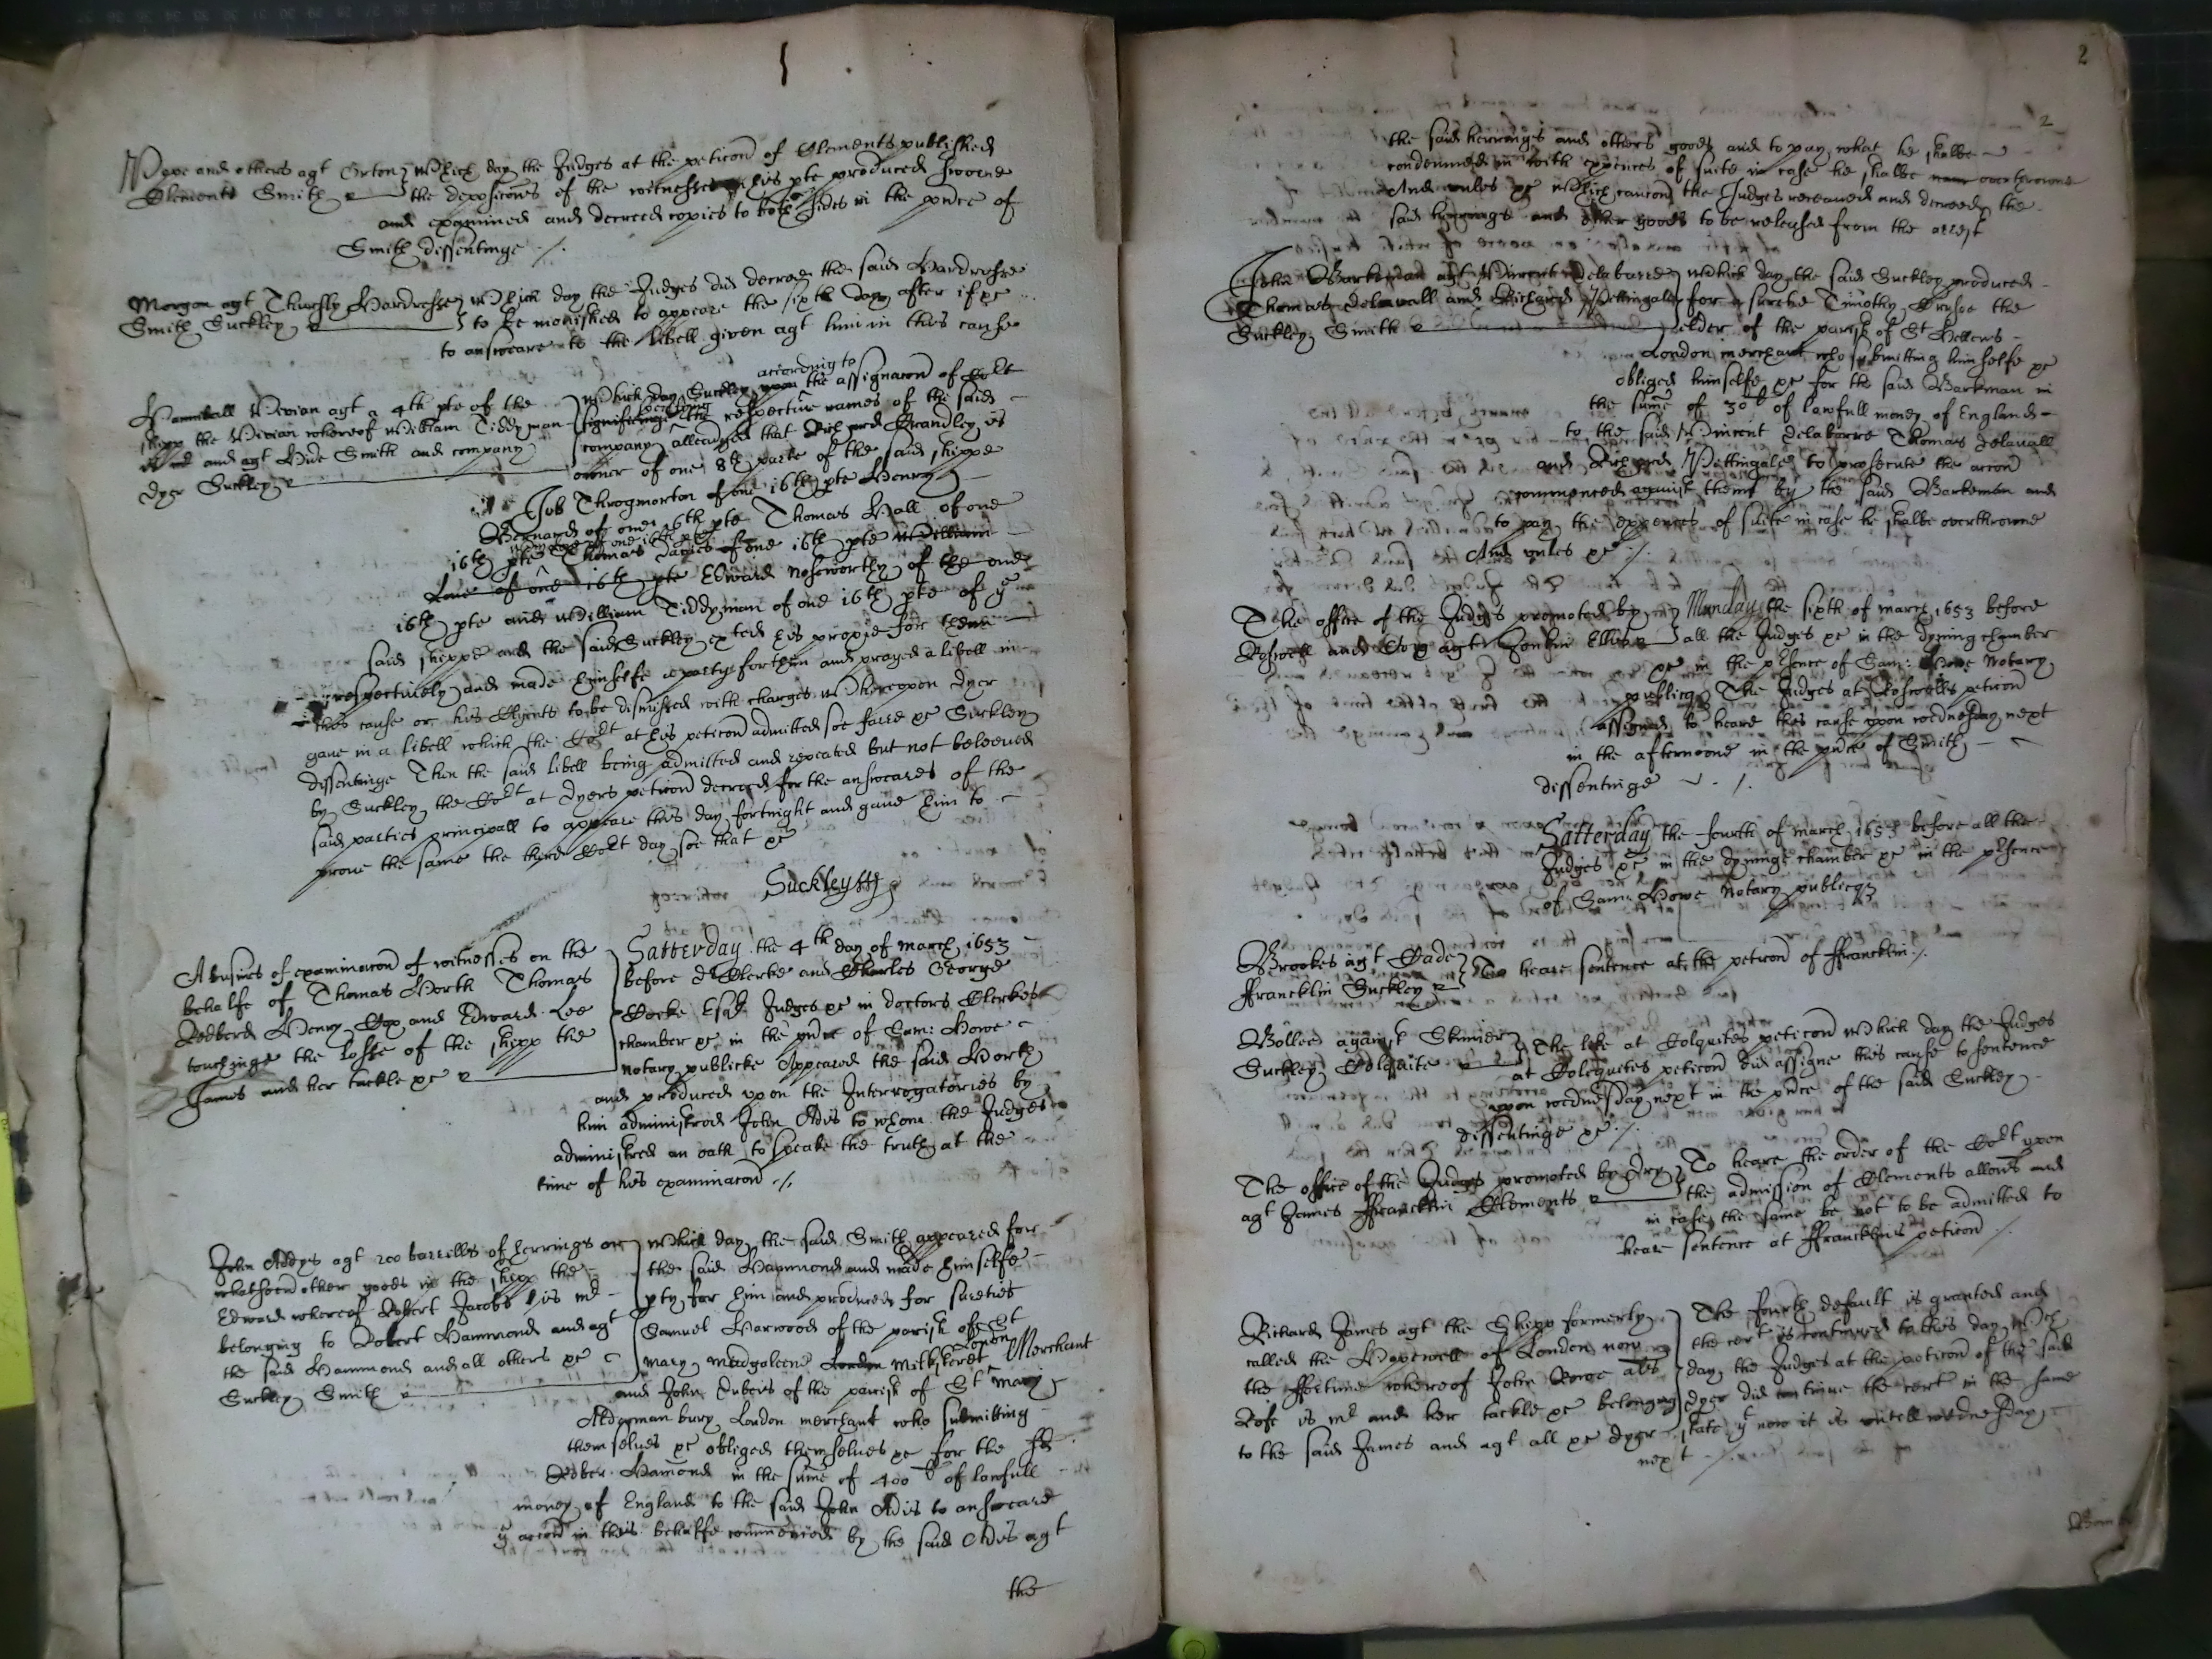 Pope and others agt Orton
Clements Smith
which day the Judges at the peticon of Clements published
the deposicons of the witnesses his pte produced sworne
and examined and decreed copies to both sides in the pnce of
Smith dissentinge ./.
Morgan agt Hardresse
Smith Suckley
which day the Judges did decree the said Hardresse
to be monished to appeare the sixth day after if xc
to answeare to the libell given agt him in this cause
Hanniball Vivian agt a 4th pte of the
shipp the Vivian whereof William Tiddyman
is mr and agt Smith and company
Dyer Suckley
according to
which day Suckley upon the assignacon of Cort
significinge the respective names of the said
company alleadged that Richard Brandley is
owner of one 8th parte of the said shippe
Job Throgmorton of one 16th pte Henry
Bernard of one 16th pte Thomas Hall of one
16th pte Thomas Davies of one 16th pte William
Love of one 16th pte Edward Nosworthy of the one
16th pte and William Tiddyman of one 16th pte of ye
said shippe and the said Suckley exted his proxie for them
respectively and made himselfe a party for them and prayed a libell in
this cause or his Clyents to be dismissed with charges Whereupon Dyer
gave in a libell which the Cort at his peticon admitted soe farre xc Suckley
dissentinge Then the said libell being admitted and repeated but not beleeved
by Suckley the Cort at Dyers peticon decreed for the answeares of the
said parties principall to appeare this day fortnight and gave him to
prove the same the third Cort day soe that xc
Suckley
A busines of examinacon of witnesses on the
behalfe of Thomas North Thomas
Redberd Henry Cox and Edward Lee
touchinge the losse of the shipp the
James and her tackle xc
Satterday the 4th day of march 1653
before dr Clerke and Charles George
Cocke Esqr Judges xc in doctors Clerkes
chamber xc in the pnce of Sam: Howe
notary publicke Appeared the said North
and produced upon the Interrogatories by
him administred John Adis to whom the Judges
administred an oath to speake the truth at the
time of his examinacon ./.
John Addys agt 200 barrells of herrings or
whatsoever other goods in the shipp the
Edward whereof Robert Jacobs is mr
belonging to Robert Hammond and agt
the said Hammond and all others xc
Suckley Smith
which day the said Smith appeared for
the said Hammond and made himselfe
pty for him and produced for sureties
Samuel Harwood of the parish of St
mary magdalene London milkstreet London Merchant
and John Dubois of the parish of St Mary
Aldermanbury London merchant who submitting
themselves xc obliged themselves xc for the sd
Rober Hamond in the sume of 400 li of lawfull
money of England to the said John Adis to answeare
ye accon in this behalfe commenced by the said Adis agt
the
2
2
the said herrings and others goods and to pay what he shalbe
condemned in with expences of suite in case he shalbe overthrowne
And unles xc which caucon the Judges received and decreed the
said herrings and other goods to be released from the arrest
John Barkeman agt Vincent Delabarre
Thomas Delavall and Richard Pettingale
Suckley Smith
which day the said Suckley produced
for a suretie Timothy Cruso the
elder of the parish of St Hellens
London merchant who submitting himselfe xc
obliged himselfe xc for the said Barkman in
the sume of 30 li of lawfull money of England
to the said Vincent Delabarre Thomas Delavall
and Richard Pettingale to prosecute the accon
commenced against them by the said Barkeman and
to pay the expences of suite in case he shalbe overthrowne
And unles xc ./.
The office of the Judges promoted by
Roswell and agt Jonkin Ellis
Munday the sixth of march 1653 before
all the Judges xc in the dyning chamber
xc in the presence of Sam: Howe Notary
publicq The Judges at Roswells peticon
assigned to heare this cause upon wednesday next
in the afternoone in the pnce of Smith
dissentinge ./.
Satterday the fourth of march 1653 before all the
Judges xc in the dyninge chamber xc in the presence
of Sam: Howe Notary publicq
Brookes agt Cade
ffrancklin Suckley
To heare sentence at the peticon of ffrancklin ./.
Bolles against Skinner
Suckley Colquite
The like at Colquites peticon which day the Judges
at Colquites peticon did assigne this cause to sentence
upon wednesday next in the pnce of the said Suckley
dissentinge xc ./.
The office of the Judges promoted by Dry
agt James ffrancklin Clements
To heare the order of the Cort upon
the admission of Clements allons and
in case the same be not to be admitted to
heare sentence at ffrancklins peticon ./.
Richard James agt the Shipp formerly
called the Hopewell of London now
the ffortune whereof John Rowe als
Rose is mr and her tackle xc belonging
to the said James and agt all xc Dyer
The fourth default is granted and
the cert is continued to this day which
day the Judges at the peticon of the said
Dyer did continue the cert in the same
state yt now it is untill wednesday
next ./.